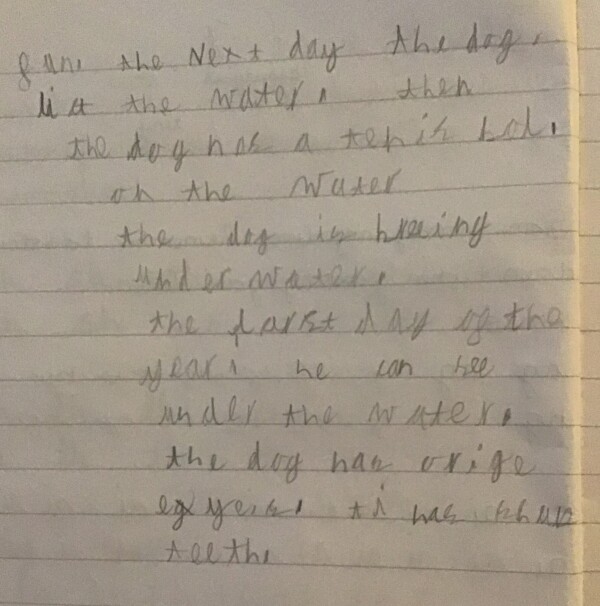 the Next day the dog.
the water. then
the dog has a tenis bol.
on the water
the dog is
under water.
the day of the
year. he can see
under the water.
the dog has orige
has
teeth.